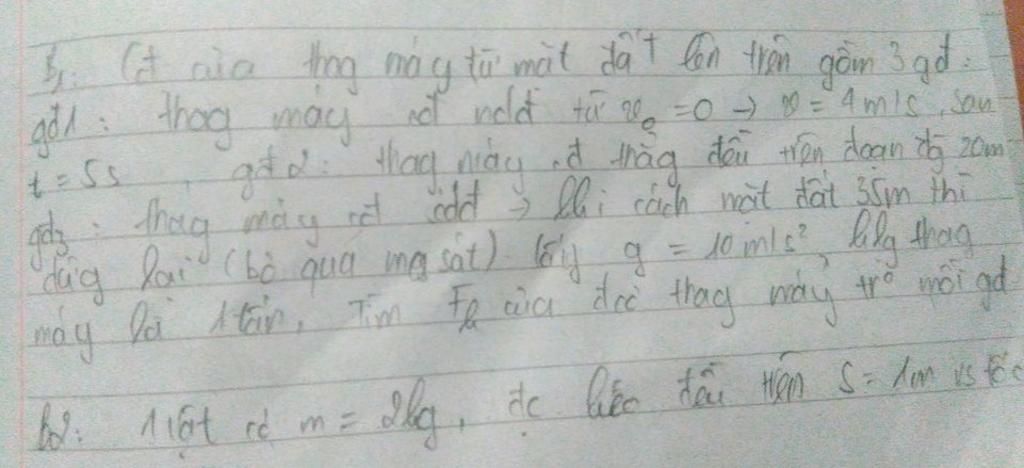 b1: Cđ của thg máy từ mặt đất lên trên gồm 3 gđ:
gđ1: thag máy cđ ndđ từ v₀ = 0 → v = 4m/s, sau
t = 5s, gđ2: thag máy cđ thẳg đều trên đoạn đg 20m
gđ3: thag máy cđ cdđ → khi cách mặt đất 35m thì
dừg lại (bỏ qua ma sát). lấy g = 10m/s², klg thag
máy là 1 tấn, Tìm Fk của đcơ thag máy trg mỗi gđ
b2: 1 vật có m = 2kg, đc kéo đều trên S = 1m vs tốc